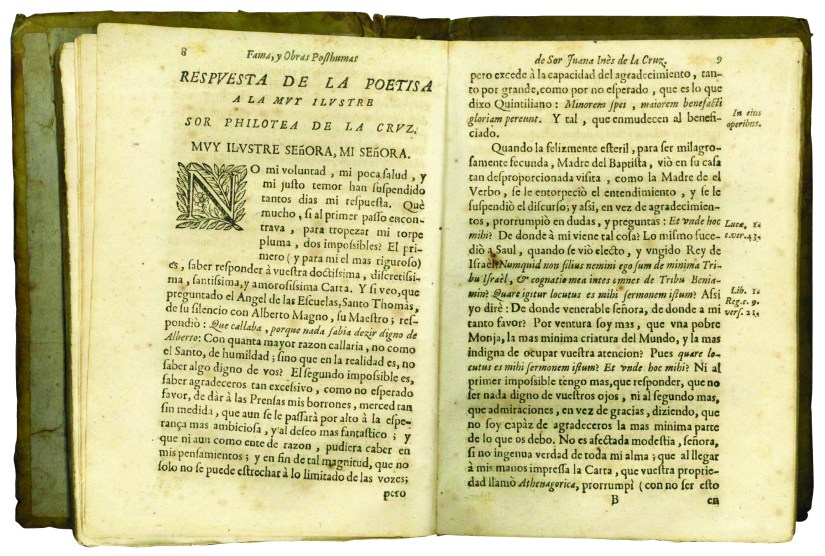 8
Fama, y Obras Posthumas
RESPVESTA DE LA POETISA
A LA MVY ILVSTRE
SOR PHILOTEA DE LA CRVZ.
MVY ILVSTRE SEñORA, MI SEñORA.
NO mi voluntad, mi poca salud, y
mi justo temor han suspendido
tantos dias mi respuesta. Què
mucho, si al primer passo encon-
trava, para tropezar mi torpe
pluma, dos impossibles? El pri-
mero (y para mi el mas riguroso)
es, saber responder à vuestra doctissima, discretissi-
ma, santissima, y amorosissima Carta. Y si veo, que
preguntado el Angel de las Escuelas, Santo Thomàs,
de su silencio con Alberto Magno, su Maestro; res-
pondiò: Que callaba, porque nada sabia dezir digno de
Alberto: Con quanta mayor razon callaria, no como
el Santo, de humildad; sino que en la realidad es, no
saber algo digno de vos? El segundo impossible es,
saber agradeceros tan excessivo, como no esperado
favor, de dàr à las Prensas mis borrones, merced tan
sin medida, que aun se le passarà por alto à la espe-
rança mas ambiciosa, y al deseo mas fantastico; y
que ni aun como ente de razon, pudiera caber en
mis pensamientos; y en fin de tal magnitud, que no
solo no se puede estrechar à lo limitado de las vozes;
pero
de Sor Juana Inès de la Cruz. 9
pero excede à la capacidad del agradecimiento, tan-
to por grande, como por no esperado, que es lo que
dixo Quintiliano: Minorem spei, maiorem benefacti
gloriam pereunt. Y tal, que enmudecen al benefi-
ciado.
In eius
operibus.
Quando la felizmente esteril, para ser milagro-
samente fecunda, Madre del Baptista, viò en su casa
tan desproporcionada visita, como la Madre de el
Verbo, se le entorpeciò el entendimiento, y se le
suspendiò el discurso; y assi, en vez de agradecimien-
tos, prorrumpiò en dudas, y preguntas: Et vnde hoc
mihi? De donde à mi viene tal cosa? Lo mismo suce-
diò a Saul, quando se viò electo, y vngido Rey de
Israèl: Numquid non filius nemini ego sum de minima Tri-
bu Israël, & cognatio mea inter omnes de Tribu Benia-
min? Quare igitur locutus es mihi sermonem istum? Assi
yo dirè: De donde venerable señora, de donde a mi
tanto favor? Por ventura soy mas, que vna pobre
Monja, la mas minima criatura del Mundo, y la mas
indigna de ocupar vuestra atencion? Pues quare lo-
cutus es mihi sermonem istum? Et vnde hoc mihi? Ni al
primer impossible tengo mas, que responder, que no
ser nada digno de vuestros ojos, ni al segundo mas,
que admiraciones, en vez de gracias, diziendo, que
no soy capàz de agradeceros la mas minima parte
de lo que os debo. No es afectada modestia, señora,
si no ingenua verdad de toda mi alma; que al llegar
à mis manos impressa la Carta, que vuestra proprie-
dad llamò Athenagorica, prorrumpì (con no ser esto
Lucæ, 1.
c. ver. 43.
Lib. 1.
Reg. c. 9.
vers. 21.
B en